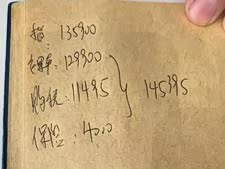 指: 135900
裸车: 129900
购税: 11495 } 145395
保险: 4000